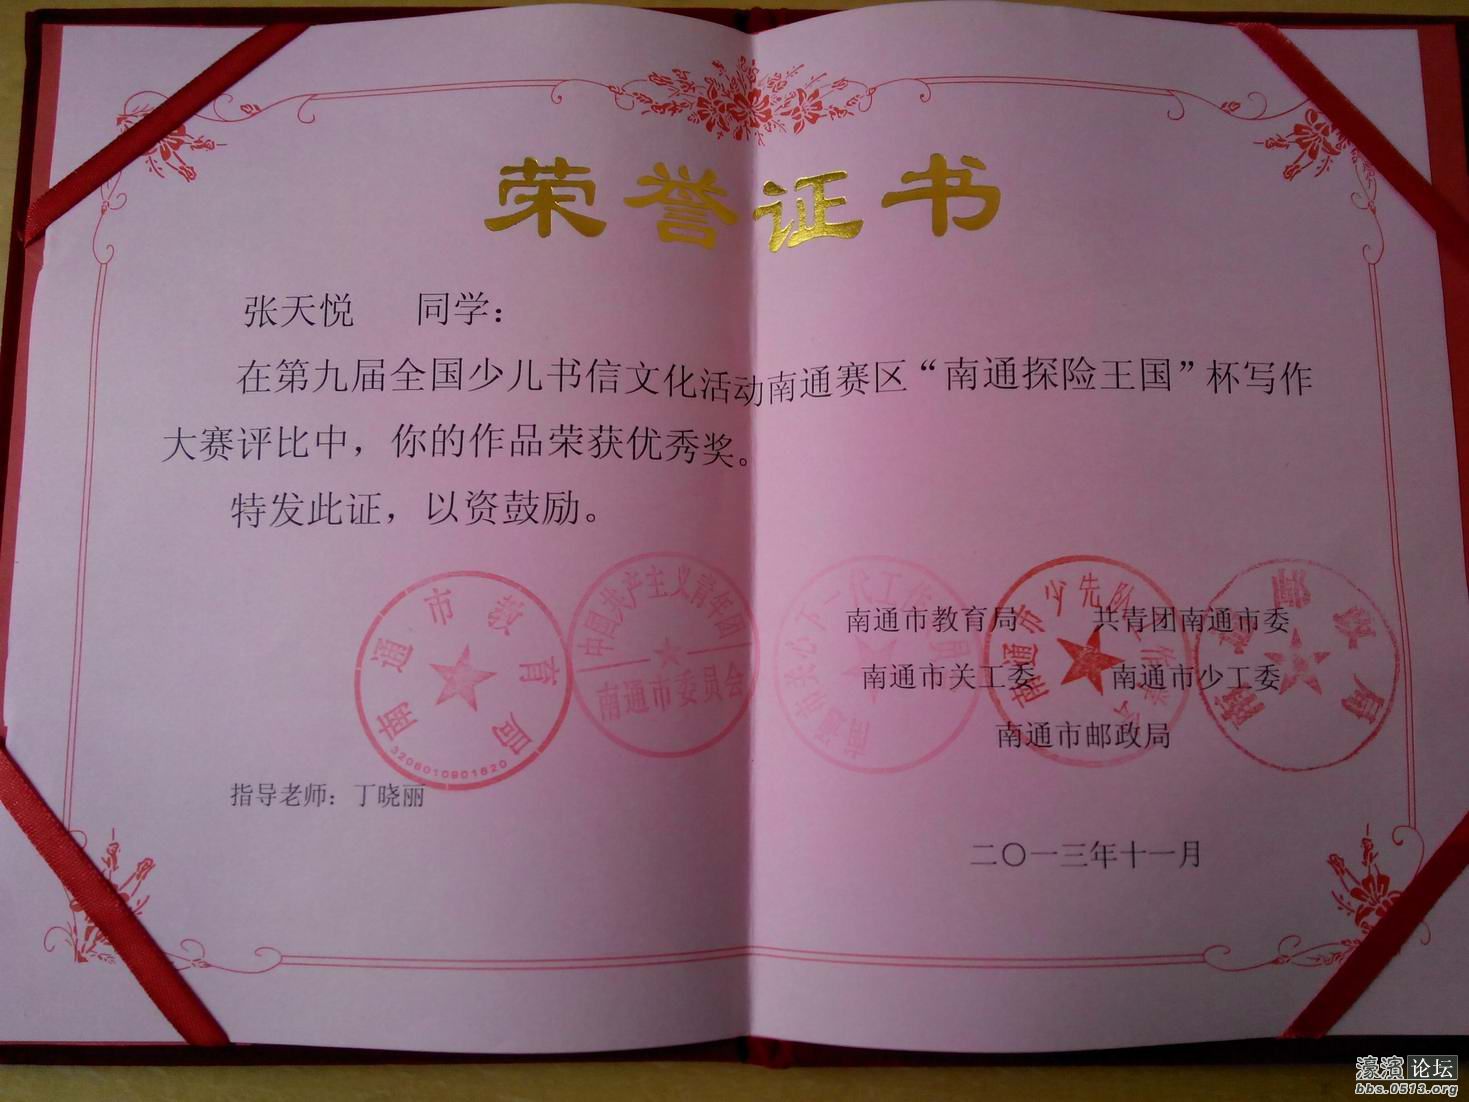 荣誉证书
张天悦 同学：
在第九届全国少儿书信文化活动南通赛区“南通探险王国”杯写作
大赛评比中，你的作品荣获优秀奖。
特发此证，以资鼓励。
南通市教育局 共青团南通市委
南通市关工委 南通市少工委
南通市邮政局
指导老师：丁晓丽
二〇一三年十一月
南通市教育局
3206010901620
中国共产主义青年团
南通市委员会
濠滨论坛
bbs.0513.org